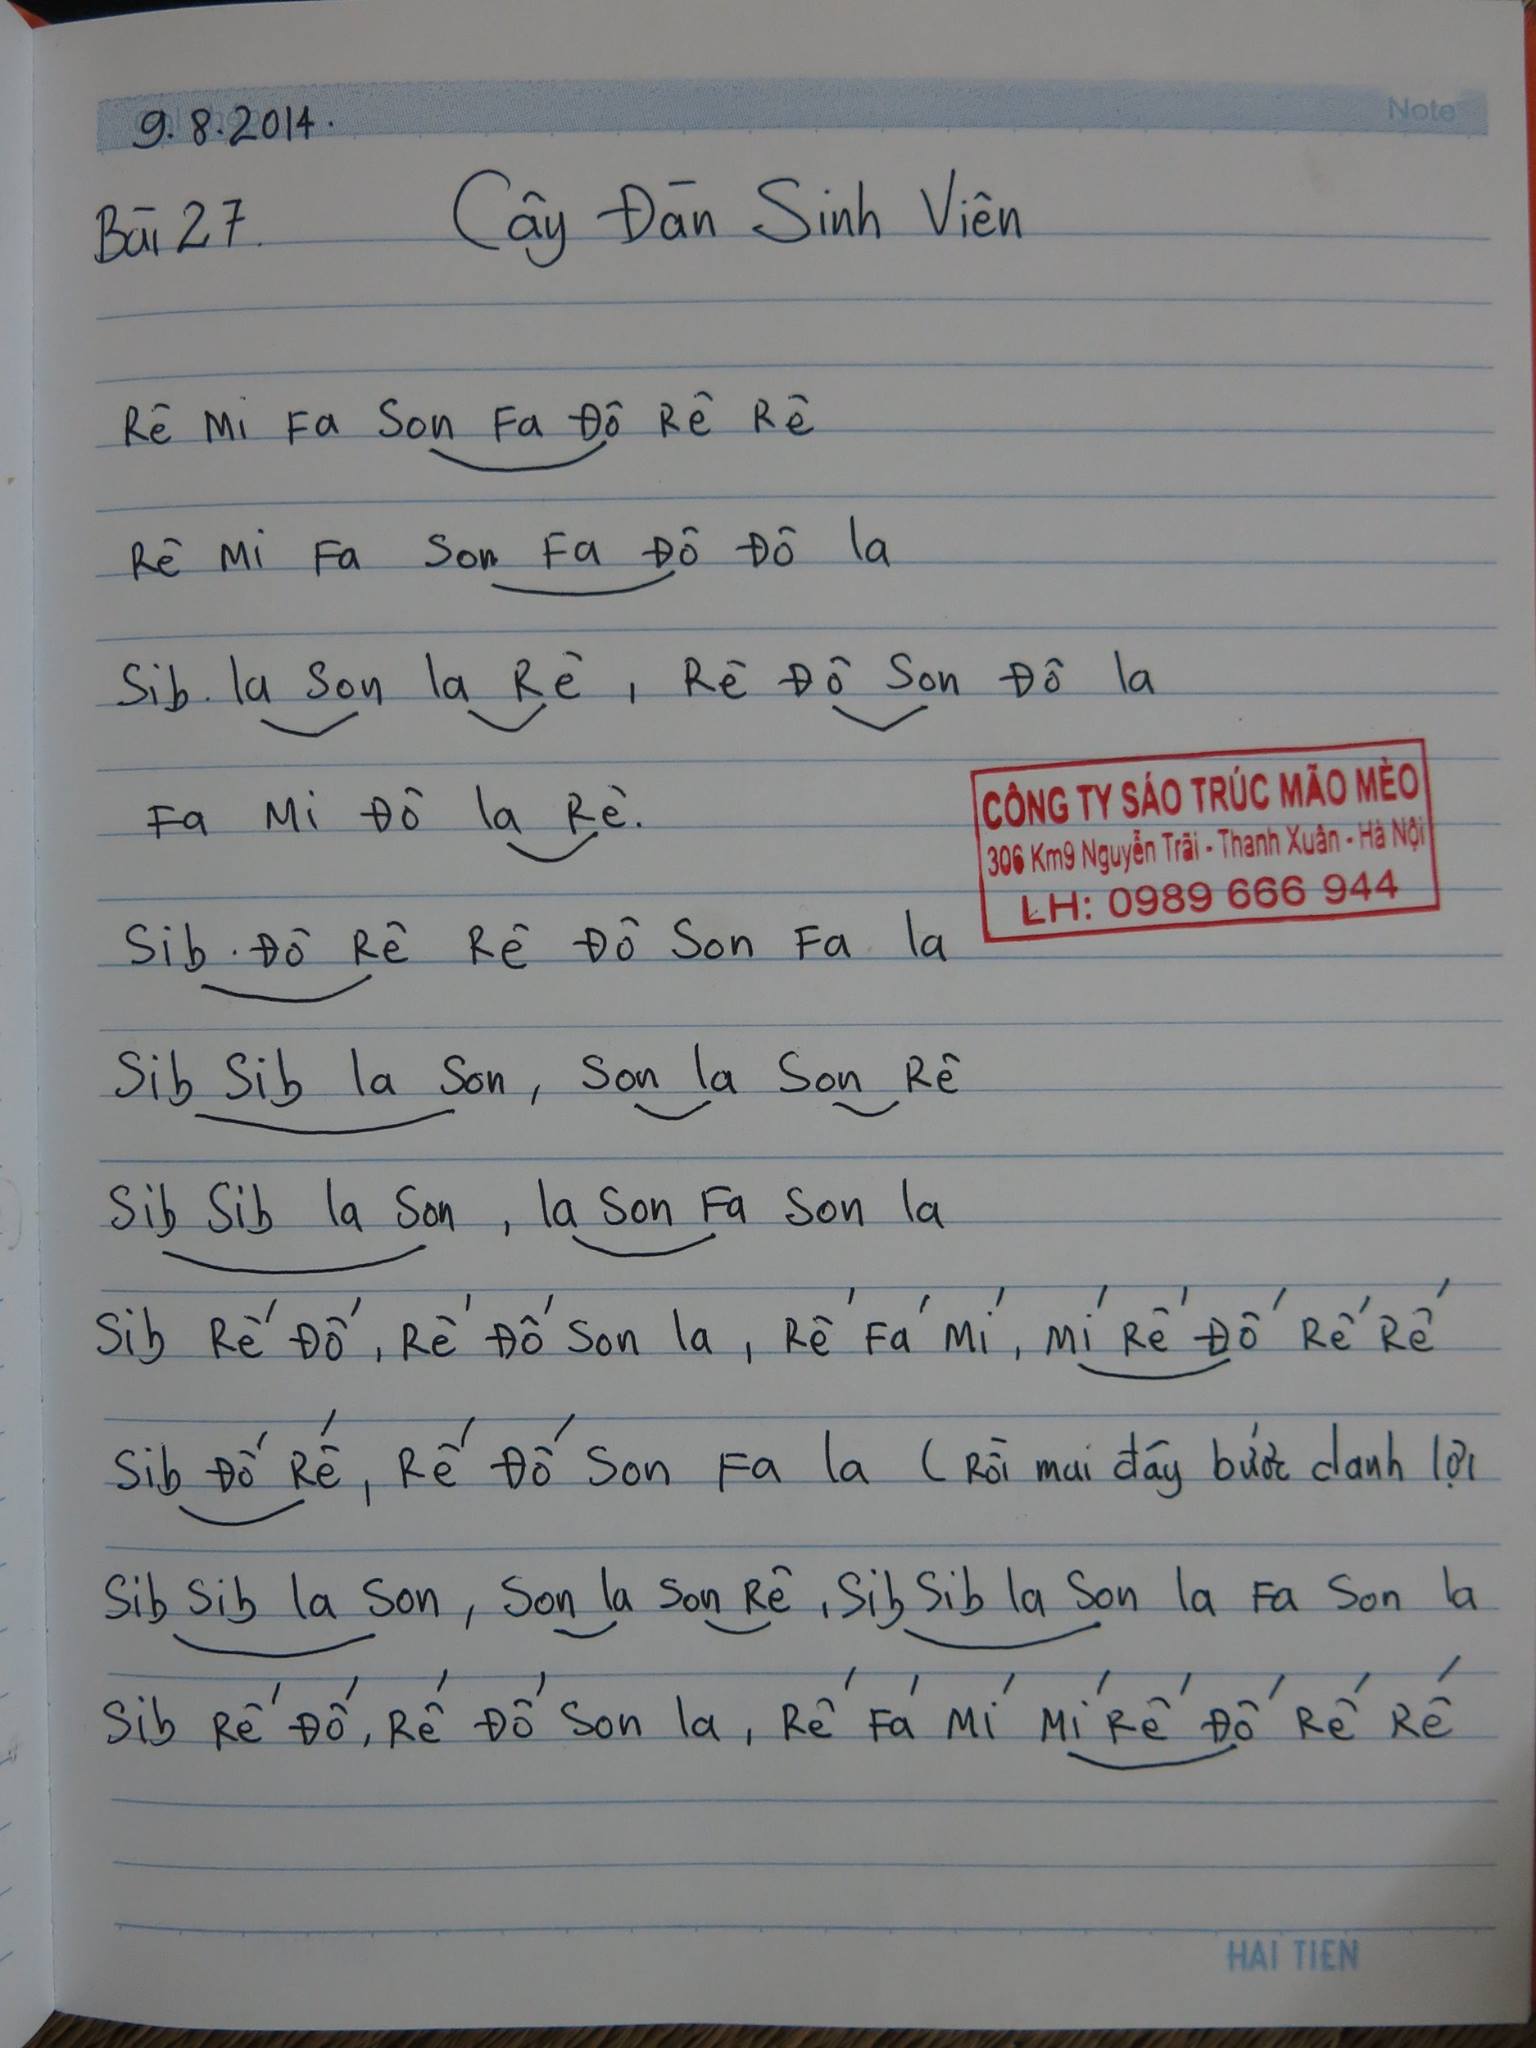 9.8.2014.
Note
Bài 27.
Cây Đàn Sinh Viên
Rê Mi Fa Son Fa Đô Rê Rê
Rê Mi Fa Son Fa Đô Đô la
Sib. la Son la Rê, Rê Đô Son Đô la
Fa Mi Đô la Rê.
CÔNG TY SÁO TRÚC MÃO MÈO
306 Km9 Nguyễn Trãi - Thanh Xuân - Hà Nội
LH: 0989 666 944
Sib. Đô Rê Rê Đô Son Fa la
Sib Sib la Son, Son la Son Rê
Sib Sib la Son, la Son Fa Son la
Sib Rế Đố, Rế Đố Son la, Rế Fá Mí, Mí Rế Đố Rế Rế
Sib Đố Rế, Rế Đố Son Fa la (Rồi mai đây bước danh lợi
Sib Sib la Son, Son la Son Rê, Sib Sib la Son la Fa Son la
Sib Rế Đố, Rế Đố Son la, Rế Fá Mí Mí Rế Đố Rế Rế
HẢI TIẾN